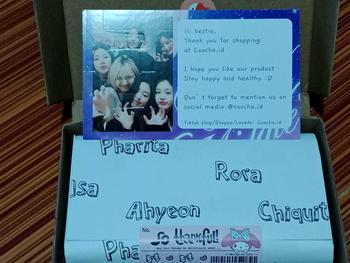 Hi bestie,
Thank you for shopping
at Coocha.id
I hope you like our product
Stay happy and healthy :D
Don't forget to mention us on
social media @coocha.id
Tiktok shop/Shopee/Lazada: Coocha.id
Pharita
Rora
Asa
Ahyeon
Chiquit
No.
So thankful!
Pha